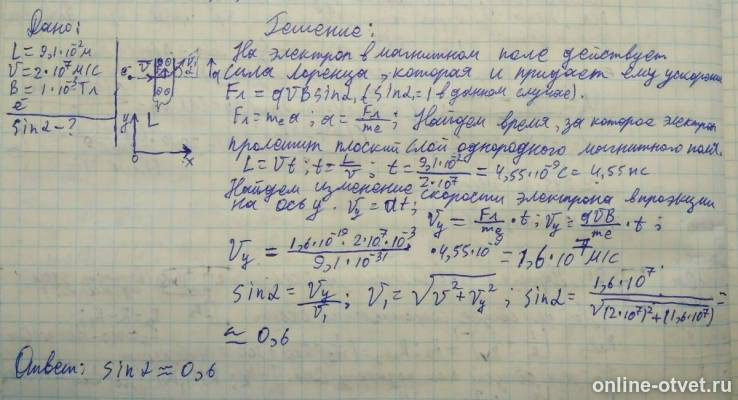 Дано:
L = 9,1·10⁻²м
V = 2·10⁷ м/с
B = 1·10⁻³Тл
e⁻
sin α - ?
e V
a
y L
x
Решение:
На электрон в магнитном поле действует
сила Лоренца, которая и придает ему ускорение
Fл = qVBsinα, (sinα=1 в данном случае).
Fл = mₑa; a = Fл/mₑ; Найдем время, за которое электрон
пролетит плоский слой однородного магнитного поля.
L = Vt; t = L/V; t = 9,1·10⁻²/2·10⁷ = 4,55·10⁻⁹с = 4,55нс
Найдем изменение скорости электрона в проекции
на ось y. Vy = at; Vy = Fл/mₑ · t; Vy = qVB/mₑ · t;
Vy = 1,6·10⁻¹⁹·2·10⁷·10⁻³/9,1·10⁻³¹ · 4,55·10⁻⁹ = 1,6·10⁷ м/с
sinα = Vy/V₁; V₁ = √V²+Vy²; sinα = 1,6·10⁷/√(2·10⁷)²+(1,6·10⁷) =
≈ 0,6
Ответ: sinα ≈ 0,6
online-otvet.ru